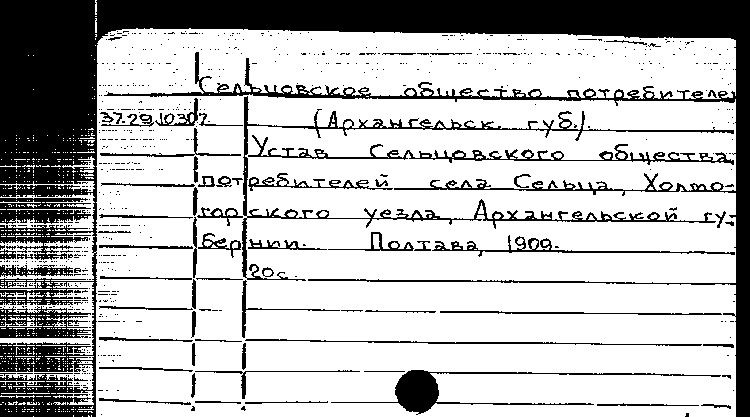 Сельцовское общество потребителе
37.29.10307 (Архангельск. губ.).
Устав Сельцовского общества
потребителей села Сельца, Холмо-
горского уезда, Архангельской гу-
бернии. Полтава, 1909.
20с.